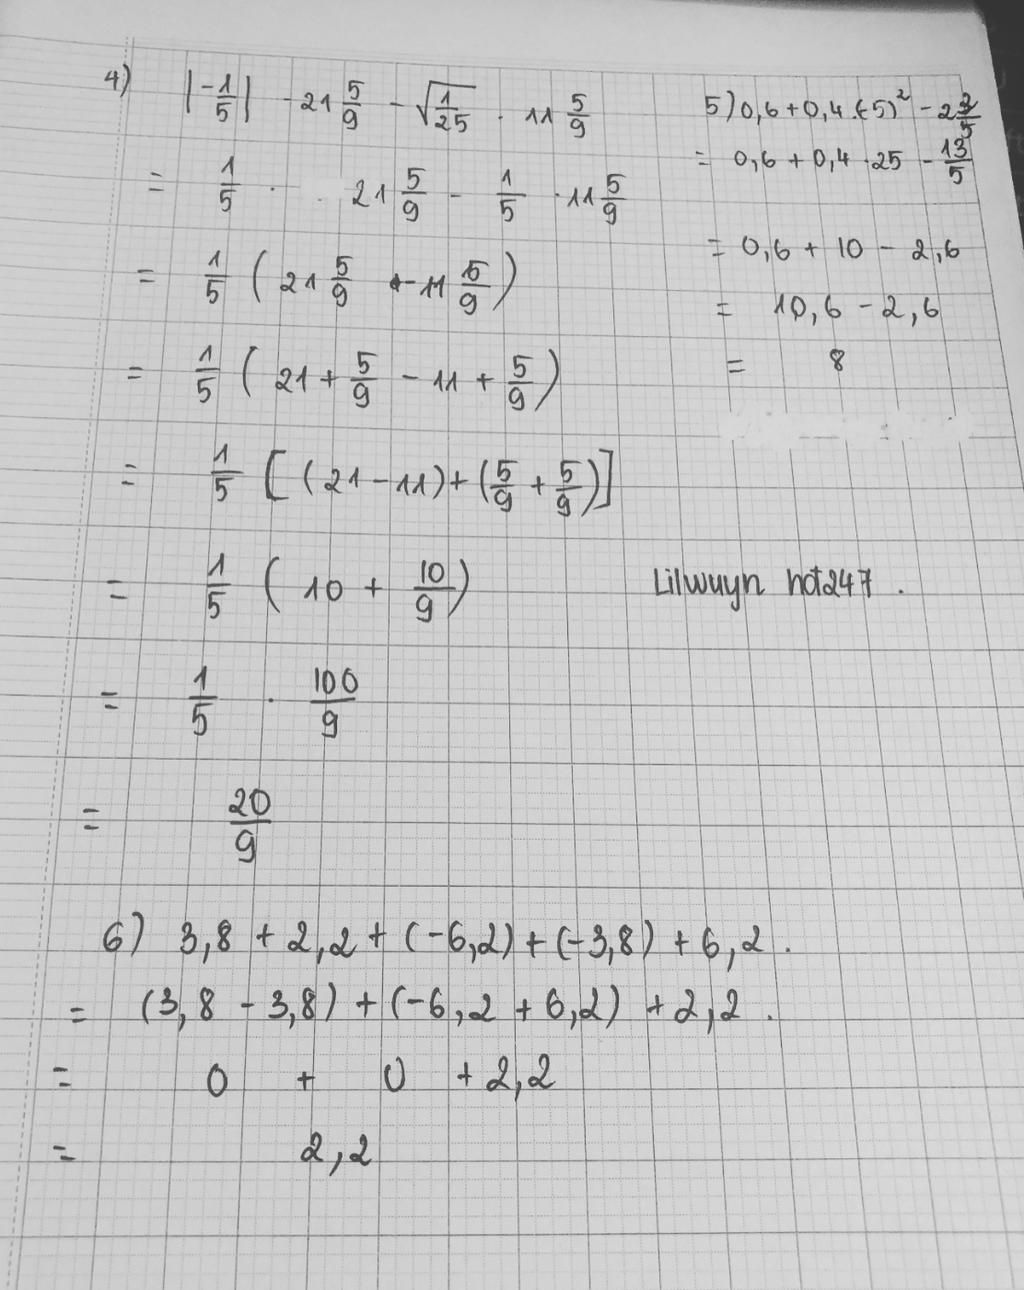 4) |-1/5| · 21 5/9 - √(1/25) · 11 5/9
= 1/5 · 21 5/9 - 1/5 · 11 5/9
= 1/5 (21 5/9 - 11 5/9)
= 1/5 (21 + 5/9 - 11 + 5/9)
= 1/5 [(21 - 11) + (5/9 + 5/9)]
= 1/5 (10 + 10/9)
= 1/5 · 100/9
= 20/9
5) 0,6 + 0,4 · (-5)² - 2 3/5
= 0,6 + 0,4 · 25 - 13/5
= 0,6 + 10 - 2,6
= 10,6 - 2,6
= 8
Lilwuyn hdt247.
6) 3,8 + 2,2 + (-6,2) + (-3,8) + 6,2.
= (3,8 - 3,8) + (-6,2 + 6,2) + 2,2.
= 0 + 0 + 2,2
= 2,2